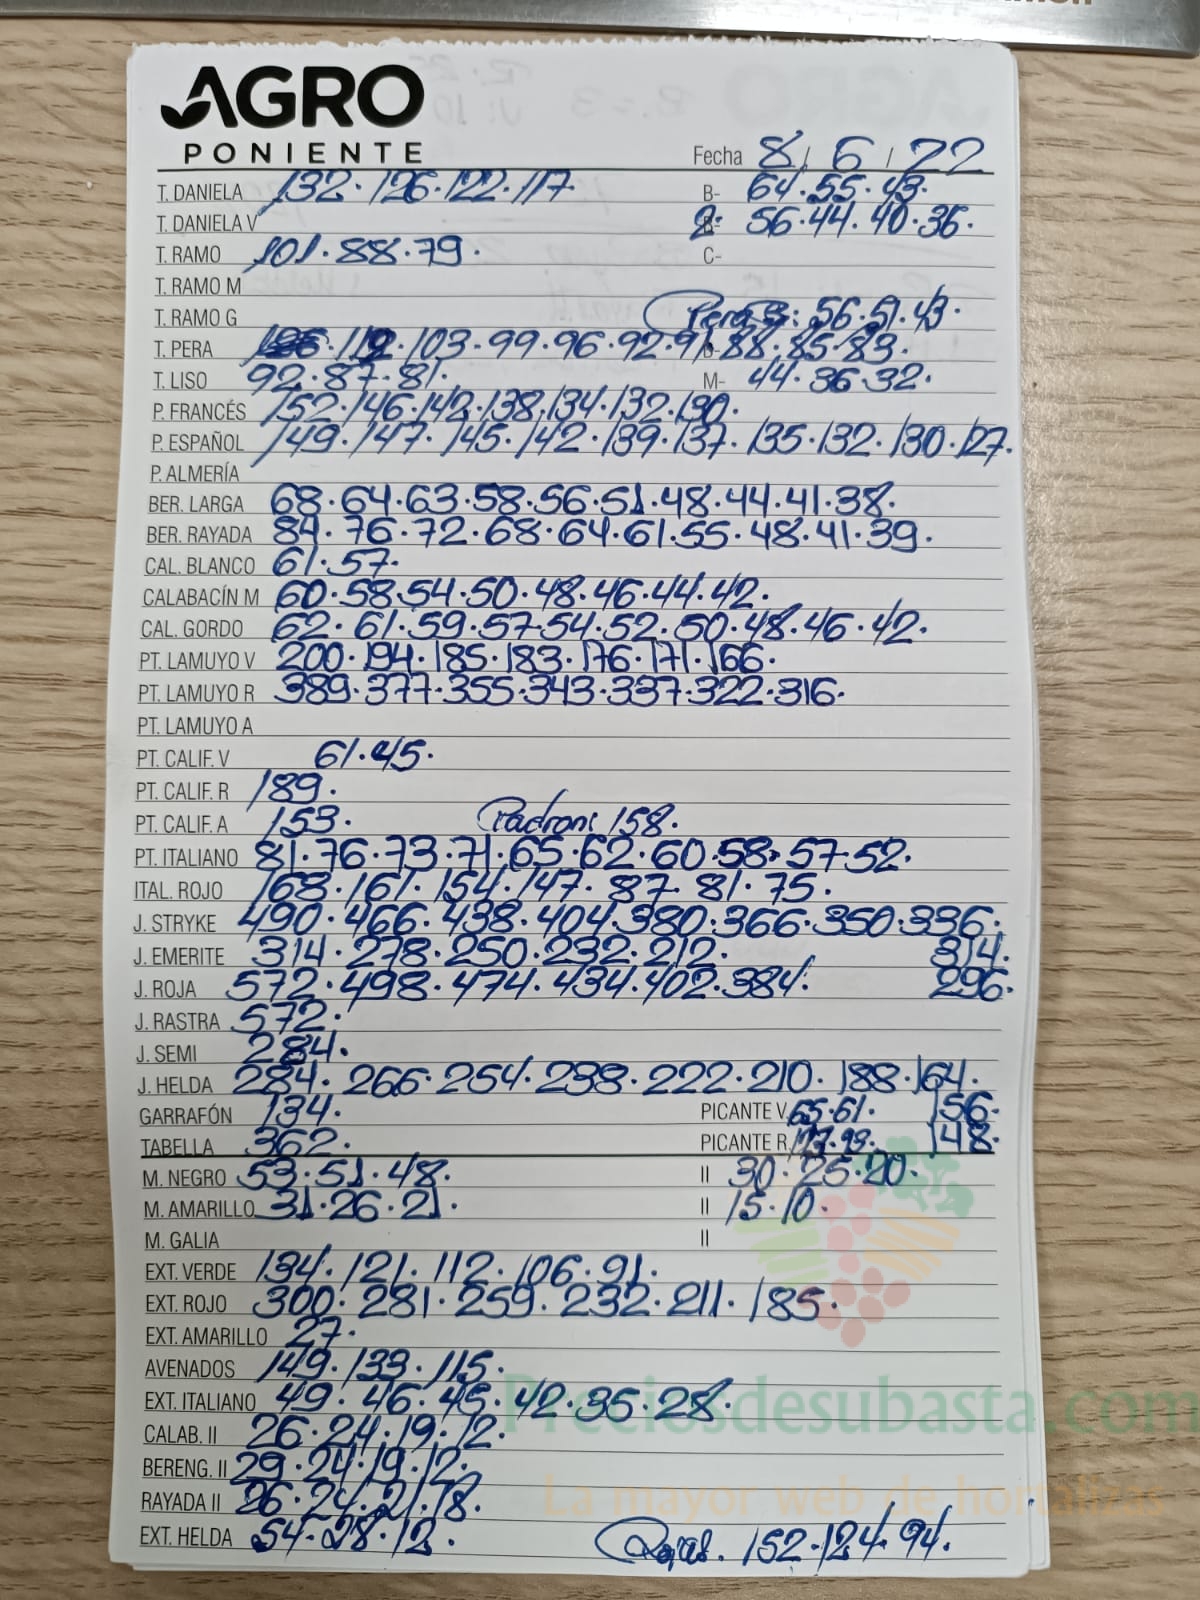 AGRO
PONIENTE
Fecha 8/6/22
T. DANIELA 132. 126. 122. 117. B- 64. 55. 43.
T. DANIELA V 2: 56. 44. 40. 36.
T. RAMO 101. 88. 79. C-
T. RAMO M
T. RAMO G Pera 56. 51. 43.
T. PERA 103. 99. 96. 92. 91. 88. 85. 83.
T. LISO 92. 87. 81. M- 44. 36. 32.
P. FRANCÉS 152. 146. 142. 138. 134. 132. 130.
P. ESPAÑOL 149. 147. 145. 142. 139. 137. 135. 132. 130. 127.
P. ALMERÍA
BER. LARGA 68. 64. 63. 58. 56. 51. 48. 44. 41. 38.
BER. RAYADA 84. 76. 72. 68. 64. 61. 55. 48. 41. 39.
CAL. BLANCO 61. 57.
CALABACÍN M 60. 58. 54. 50. 48. 46. 44. 42.
CAL. GORDO 62. 61. 59. 57. 54. 52. 50. 48. 46. 42.
PT. LAMUYO V 200. 194. 185. 183. 176. 171. 166.
PT. LAMUYO R 389. 377. 355. 343. 337. 322. 316.
PT. LAMUYO A
PT. CALIF. V 61. 45.
PT. CALIF. R 189.
PT. CALIF. A 153. Padron: 158.
PT. ITALIANO 81. 76. 73. 71. 65. 62. 60. 58. 57. 52.
ITAL. ROJO 168. 161. 154. 147. 87. 81. 75.
J. STRYKE 490. 466. 438. 404. 380. 366. 350. 336.
J. EMERITE 314. 278. 250. 232. 212. 314.
J. ROJA 572. 498. 474. 434. 402. 384. 296.
J. RASTRA 572.
J. SEMI 284.
J. HELDA 284. 266. 254. 238. 222. 210. 188. 164.
GARRAFÓN 134. PICANTE V 65. 61. 156.
TABELLA 362. PICANTE R 148.
M. NEGRO 53. 51. 48. II 30. 25. 20.
M. AMARILLO 31. 26. 21. II 15. 10.
M. GALIA II
EXT. VERDE 134. 121. 112. 106. 91.
EXT. ROJO 300. 281. 259. 232. 211. 185.
EXT. AMARILLO 27.
AVENADOS 149. 133. 115.
EXT. ITALIANO 49. 46. 45. 42. 35. 28.
Preciosdesubasta.com
CALAB. II 26. 24. 19. 12.
BERENG. II 29. 24. 19. 12.
RAYADA II 26. 24. 21. 18.
La mayor web de hortalizas
EXT. HELDA 54. 28. 12. 152. 124. 94.